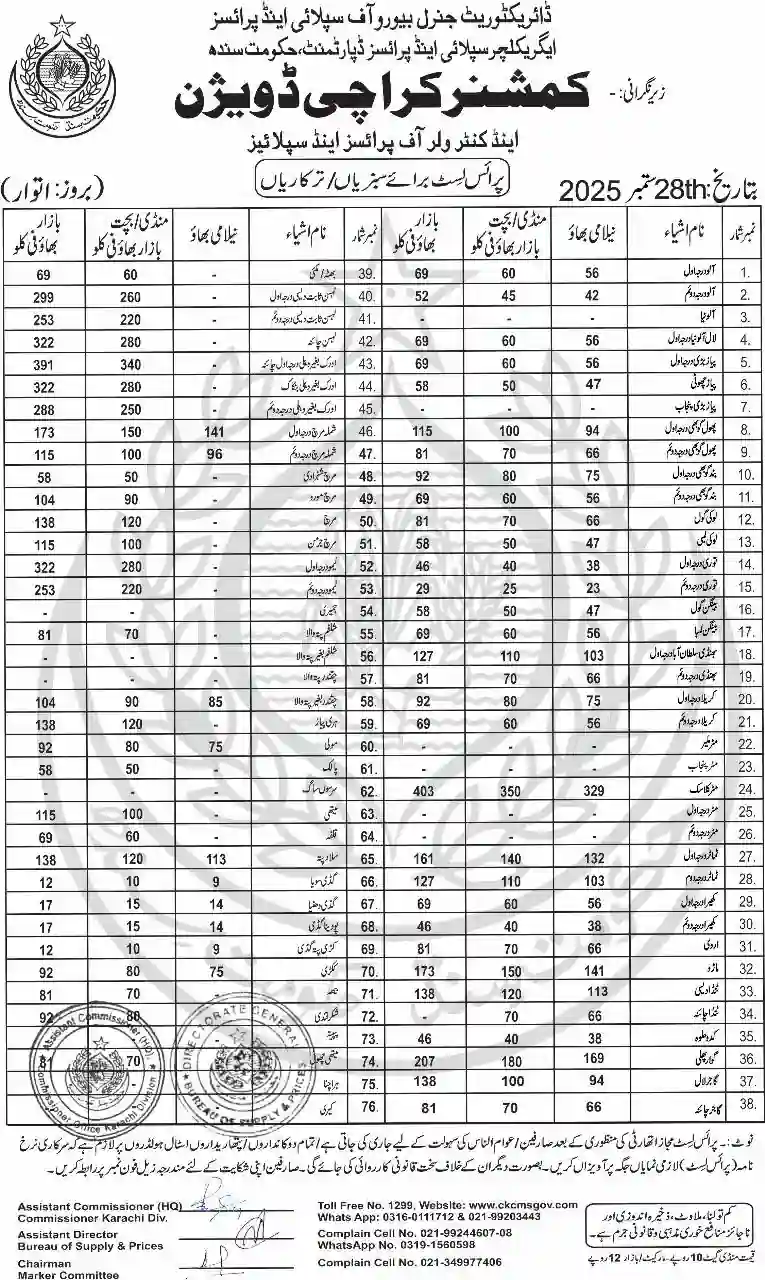 ڈائریکٹوریٹ جنرل بیورو آف سپلائی اینڈ پرائسز
ایگریکلچر سپلائی اینڈ پرائسز ڈپارٹمنٹ، حکومت سندھ
زیر نگرانی:-
کمشنر کراچی ڈویژن
اینڈ کنٹرولر آف پرائسز اینڈ سپلائیز
پرائس لسٹ برائے سبزیاں/ترکاریاں
بتاریخ: 28th ستمبر 2025
(بروز: اتوار)
نمبر شمار نام اشیاء نیلامی بھاؤ منڈی/بچت بازار بھاؤ فی کلو بازار بھاؤ فی کلو
1. آلو درجہ اول 56 60 69
2. آلو درجہ دوئم 42 45 52
3. آلو نیا - - -
4. لال آلو نیا درجہ اول 56 60 69
5. پیاز بڑی درجہ اول 56 60 69
6. پیاز چھوٹی 47 50 58
7. پیاز بڑی پنجاب - - -
8. پھول گوبھی درجہ اول 94 100 115
9. پھول گوبھی درجہ دوئم 66 70 81
10. بند گوبھی درجہ اول 75 80 92
11. بند گوبھی درجہ دوئم 56 60 69
12. لوکی گول 66 70 81
13. لوکی لمبی 47 50 58
14. توری درجہ اول 38 40 46
15. توری درجہ دوئم 23 25 29
16. بینگن گول 47 50 58
17. بینگن لمبا 56 60 69
18. بھنڈی سلطان آباد درجہ اول 103 110 127
19. بھنڈی درجہ دوئم 66 70 81
20. کریلا درجہ اول 75 80 92
21. کریلا درجہ دوئم 56 60 69
22. مٹر ملیر - - -
23. مٹر پنجاب - - -
24. مٹر کلاسک 329 350 403
25. مٹر درجہ اول - - -
26. مٹر درجہ دوئم - - -
27. ٹماٹر درجہ اول 132 140 161
28. ٹماٹر درجہ دوم 103 110 127
29. کھیرا درجہ اول 56 60 69
30. کھیرا درجہ دوئم 38 40 46
31. اروی 66 70 81
32. 141 150 173
33. ٹنڈا دیسی 113 120 138
34. ٹنڈا چائنہ 66 70 -
35. کدو حلوہ 38 40 46
36. گوار پھلی 169 180 207
37. گاجر لال 94 100 138
38. گاجر چائنہ 66 70 81
نمبر شمار نام اشیاء نیلامی بھاؤ منڈی/بچت بازار بھاؤ فی کلو بازار بھاؤ فی کلو
39. بھٹہ/مکئی - 60 69
40. لہسن ثابت دیسی درجہ اول - 260 299
41. لہسن ثابت دیسی درجہ دوئم - 220 253
42. لہسن چائنہ - 280 322
43. ادرک بغیر دھلی درجہ اول چائنہ - 340 391
44. ادرک بغیر دھلی - 280 322
45. ادرک بغیر دھلی درجہ دوئم - 250 288
46. شملہ مرچ درجہ اول 141 150 173
47. شملہ مرچ درجہ دوئم 96 100 115
48. مرچ شہزادی - 50 58
49. مرچ - 90 104
50. مرچ - 120 138
51. مرچ - 100 115
52. لیمو درجہ اول - 280 322
53. لیمو درجہ دوئم - 220 253
54. - - -
55. شلغم پتہ والا - 70 81
56. شلغم بغیر پتہ والا - - -
57. چقندر پتہ والا - - -
58. چقندر بغیر پتہ والا 85 90 104
59. ہری پیاز - 120 138
60. مولی 75 80 92
61. پالک - 50 58
62. سرسوں ساگ - - -
63. میتھی - 100 115
64. قلفہ - 60 69
65. سلاد پتہ 113 120 138
66. گڈی سویا 9 10 12
67. گڈی دھنیا 14 15 17
68. پودینا گڈی 14 15 17
69. کڑی پتہ گڈی 9 10 12
70. ککڑی 75 80 92
71. - 70 81
72. شکرقندی 80 92
73. پپیتہ
74. میتھی پھول 70
75. ہرا چنا
76. کیری
Assistant Commissioner (HQ)
Commissioner Office Karachi Division
DIRECTORATE GENERAL
BUREAU OF SUPPLY & PRICES
نوٹ:- پرائس لسٹ مجاز اتھارٹی کی منظوری کے بعد صارفین/عوام الناس کی سہولت کے لیے جاری کی جاتی ہے/تمام دوکانداروں/پتھاریداروں اسٹال ہولڈروں پر لازم ہے کہ سرکاری نرخ
نامہ (پرائس لسٹ) لازمی نمایاں جگہ پر آویزاں کریں۔ بصورت دیگر ان کے خلاف سخت قانونی کارروائی کی جائے گی۔ صارفین اپنی شکایت کے لئے مندرجہ ذیل فون نمبر پر رابطہ کریں۔
Assistant Commissioner (HQ)
Commissioner Karachi Div.
Assistant Director
Bureau of Supply & Prices
Chairman
Marker Committee
Toll Free No. 1299, Website: www.ckcmsgov.com
Whats App: 0316-0111712 & 021-99203443
Complain Cell No. 021-99244607-08
WhatsApp No. 0319-1560598
Complain Cell No. 021-349977406
کم تولنا، ملاوٹ، ذخیرہ اندوزی اور
ناجائز منافع خوری مذہبی و قانونی جرم ہے۔
قیمت منڈی گیٹ 10 روپے۔ مارکیٹ/بازار 12 روپے